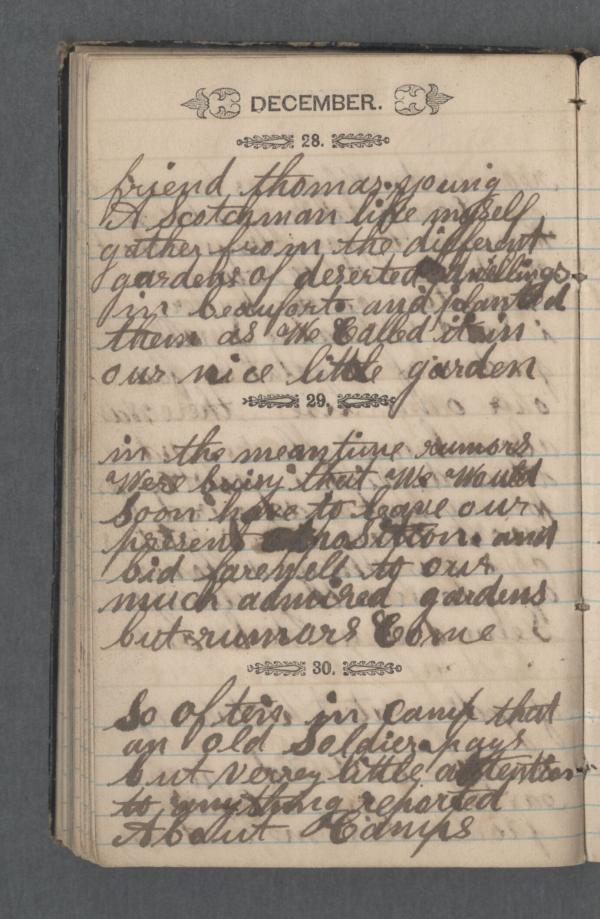 DECEMBER.
28.
friend thomas young
A Scotchman like myself
gather from the different
gardens of deserted dwellings
in beaufort and planted
them as We Called it in
our nice little garden
29.
in the meantime rumors
Were buisy that We Would
Soon have to leave our
present position. and
bid farewell to our
much admired gardens
but rumors Come
30.
So often in Camp that
an old Soldier pays
but verrey little attention
to anything reported
About Camps